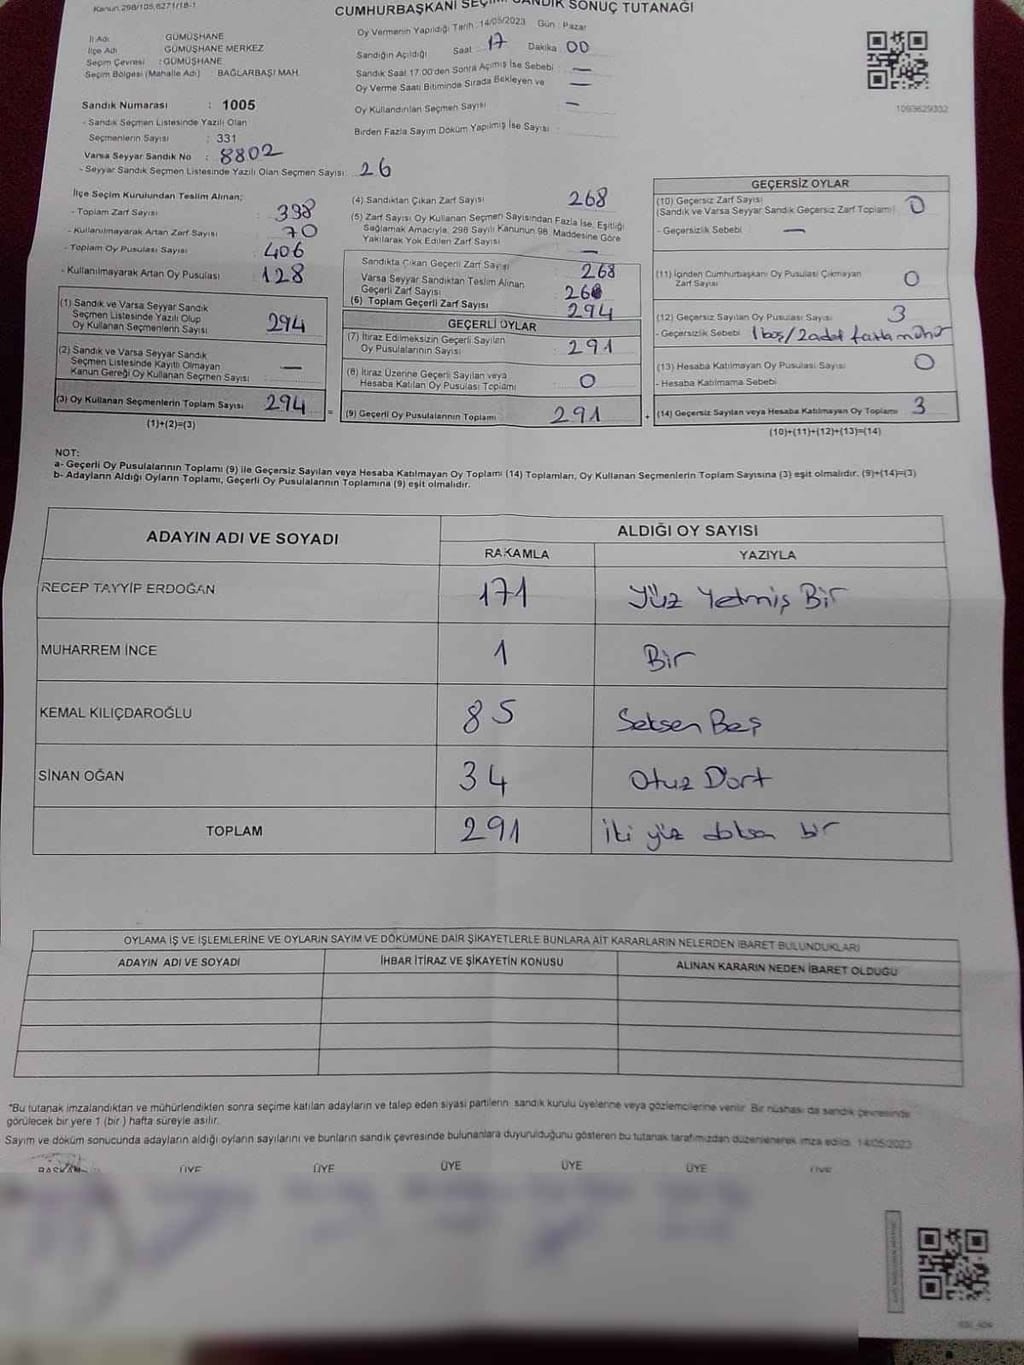 Kanun 298/105,6271/18-1
CUMHURBAŞKANI SEÇİMİ SANDIK SONUÇ TUTANAĞI
İl Adı GÜMÜŞHANE
İlçe Adı GÜMÜŞHANE MERKEZ
Seçim Çevresi : GÜMÜŞHANE
Seçim Bölgesi (Mahalle Adı) : BAĞLARBAŞI MAH.
Oy Vermenin Yapıldığı Tarih : 14/05/2023 Gün : Pazar
Sandığın Açıldığı Saat 17 Dakika 00
Sandık Saat 17.00'den Sonra Açılmış İse Sebebi —
Oy Verme Saati Bitiminde Sırada Bekleyen ve —
Oy Kullandırılan Seçmen Sayısı —
Birden Fazla Sayım Döküm Yapılmış İse Sayısı
1093629332
Sandık Numarası : 1005
- Sandık Seçmen Listesinde Yazılı Olan
Seçmenlerin Sayısı : 331
Varsa Seyyar Sandık No : 8802
- Seyyar Sandık Seçmen Listesinde Yazılı Olan Seçmen Sayısı: 26
İlçe Seçim Kurulundan Teslim Alınan;
- Toplam Zarf Sayısı : 398
- Kullanılmayarak Artan Zarf Sayısı : 70
- Toplam Oy Pusulası Sayısı : 406
- Kullanılmayarak Artan Oy Pusulası : 128
(1) Sandık ve Varsa Seyyar Sandık
Seçmen Listesinde Yazılı Olup
Oy Kullanan Seçmenlerin Sayısı 294
(2) Sandık ve Varsa Seyyar Sandık
Seçmen Listesinde Kayıtlı Olmayan
Kanun Gereği Oy Kullanan Seçmen Sayısı —
(3) Oy Kullanan Seçmenlerin Toplam Sayısı 294
(1)+(2)=(3)
(4) Sandıktan Çıkan Zarf Sayısı 268
(5) Zarf Sayısı Oy Kullanan Seçmen Sayısından Fazla İse, Eşitliği
Sağlamak Amacıyla, 298 Sayılı Kanunun 98. Maddesine Göre
Yakılarak Yok Edilen Zarf Sayısı —
Sandıkta Çıkan Geçerli Zarf Sayısı : 268
Varsa Seyyar Sandıktan Teslim Alınan
Geçerli Zarf Sayısı :
(6) Toplam Geçerli Zarf Sayısı : 294
GEÇERLİ OYLAR
(7) İtiraz Edilmeksizin Geçerli Sayılan
Oy Pusulalarının Sayısı : 291
(8) İtiraz Üzerine Geçerli Sayılan veya
Hesaba Katılan Oy Pusulası Toplamı : 0
= (9) Geçerli Oy Pusulalarının Toplamı 291
GEÇERSİZ OYLAR
(10) Geçersiz Zarf Sayısı
(Sandık ve Varsa Seyyar Sandık Geçersiz Zarf Toplamı) 0
- Geçersizlik Sebebi —
(11) İçinden Cumhurbaşkanı Oy Pusulası Çıkmayan
Zarf Sayısı 0
(12) Geçersiz Sayılan Oy Pusulası Sayısı : 3
- Geçersizlik Sebebi 1 boş/2 adet fazla mühür
(13) Hesaba Katılmayan Oy Pusulası Sayısı : 0
- Hesaba Katılmama Sebebi
+ (14) Geçersiz Sayılan veya Hesaba Katılmayan Oy Toplamı 3
(10)+(11)+(12)+(13)=(14)
NOT:
a- Geçerli Oy Pusulalarının Toplamı (9) ile Geçersiz Sayılan veya Hesaba Katılmayan Oy Toplamı (14) Toplamları, Oy Kullanan Seçmenlerin Toplam Sayısına (3) eşit olmalıdır. (9)+(14)=(3)
b- Adayların Aldığı Oyların Toplamı, Geçerli Oy Pusulalarının Toplamına (9) eşit olmalıdır.
ADAYIN ADI VE SOYADI ALDIĞI OY SAYISI
RAKAMLA YAZIYLA
RECEP TAYYİP ERDOĞAN 171 Yüz Yetmiş Bir
MUHARREM İNCE 1 Bir
KEMAL KILIÇDAROĞLU 85 Seksen Beş
SİNAN OĞAN 34 Otuz Dört
TOPLAM 291 İki yüz doksan bir
OYLAMA İŞ VE İŞLEMLERİNE VE OYLARIN SAYIM VE DÖKÜMÜNE DAİR ŞİKAYETLERLE BUNLARA AİT KARARLARIN NELERDEN İBARET BULUNDUKLARI
ADAYIN ADI VE SOYADI İHBAR İTİRAZ VE ŞİKAYETİN KONUSU ALINAN KARARIN NEDEN İBARET OLDUĞU
*Bu tutanak imzalandıktan ve mühürlendikten sonra seçime katılan adayların ve talep eden siyasi partilerin sandık kurulu üyelerine veya gözlemcilerine verilir. Bir nüshası da sandık çevresinde
görülecek bir yere 1 (bir ) hafta süreyle asılır.
Sayım ve döküm sonucunda adayların aldığı oyların sayılarını ve bunların sandık çevresinde bulunanlara duyurulduğunu gösteren bu tutanak tarafımızdan düzenlenerek imza edildi. 14/05/2023
BAŞKAN ÜYE ÜYE ÜYE ÜYE ÜYE ÜYE